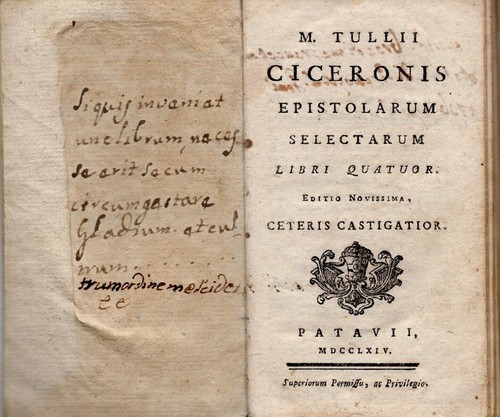 Si quis invaniat
unc librum, neces
sa arit secum
circumgestare
Gladium et cul
trum
M. TULLII
CICERONIS
EPISTOLARUM
SELECTARUM
LIBRI QUATUOR.
EDITIO NOVISSIMA,
CETERIS CASTIGATIOR.
PATAVII,
MDCCLXIV.
Superiorum Permissu, ac Privilegio.